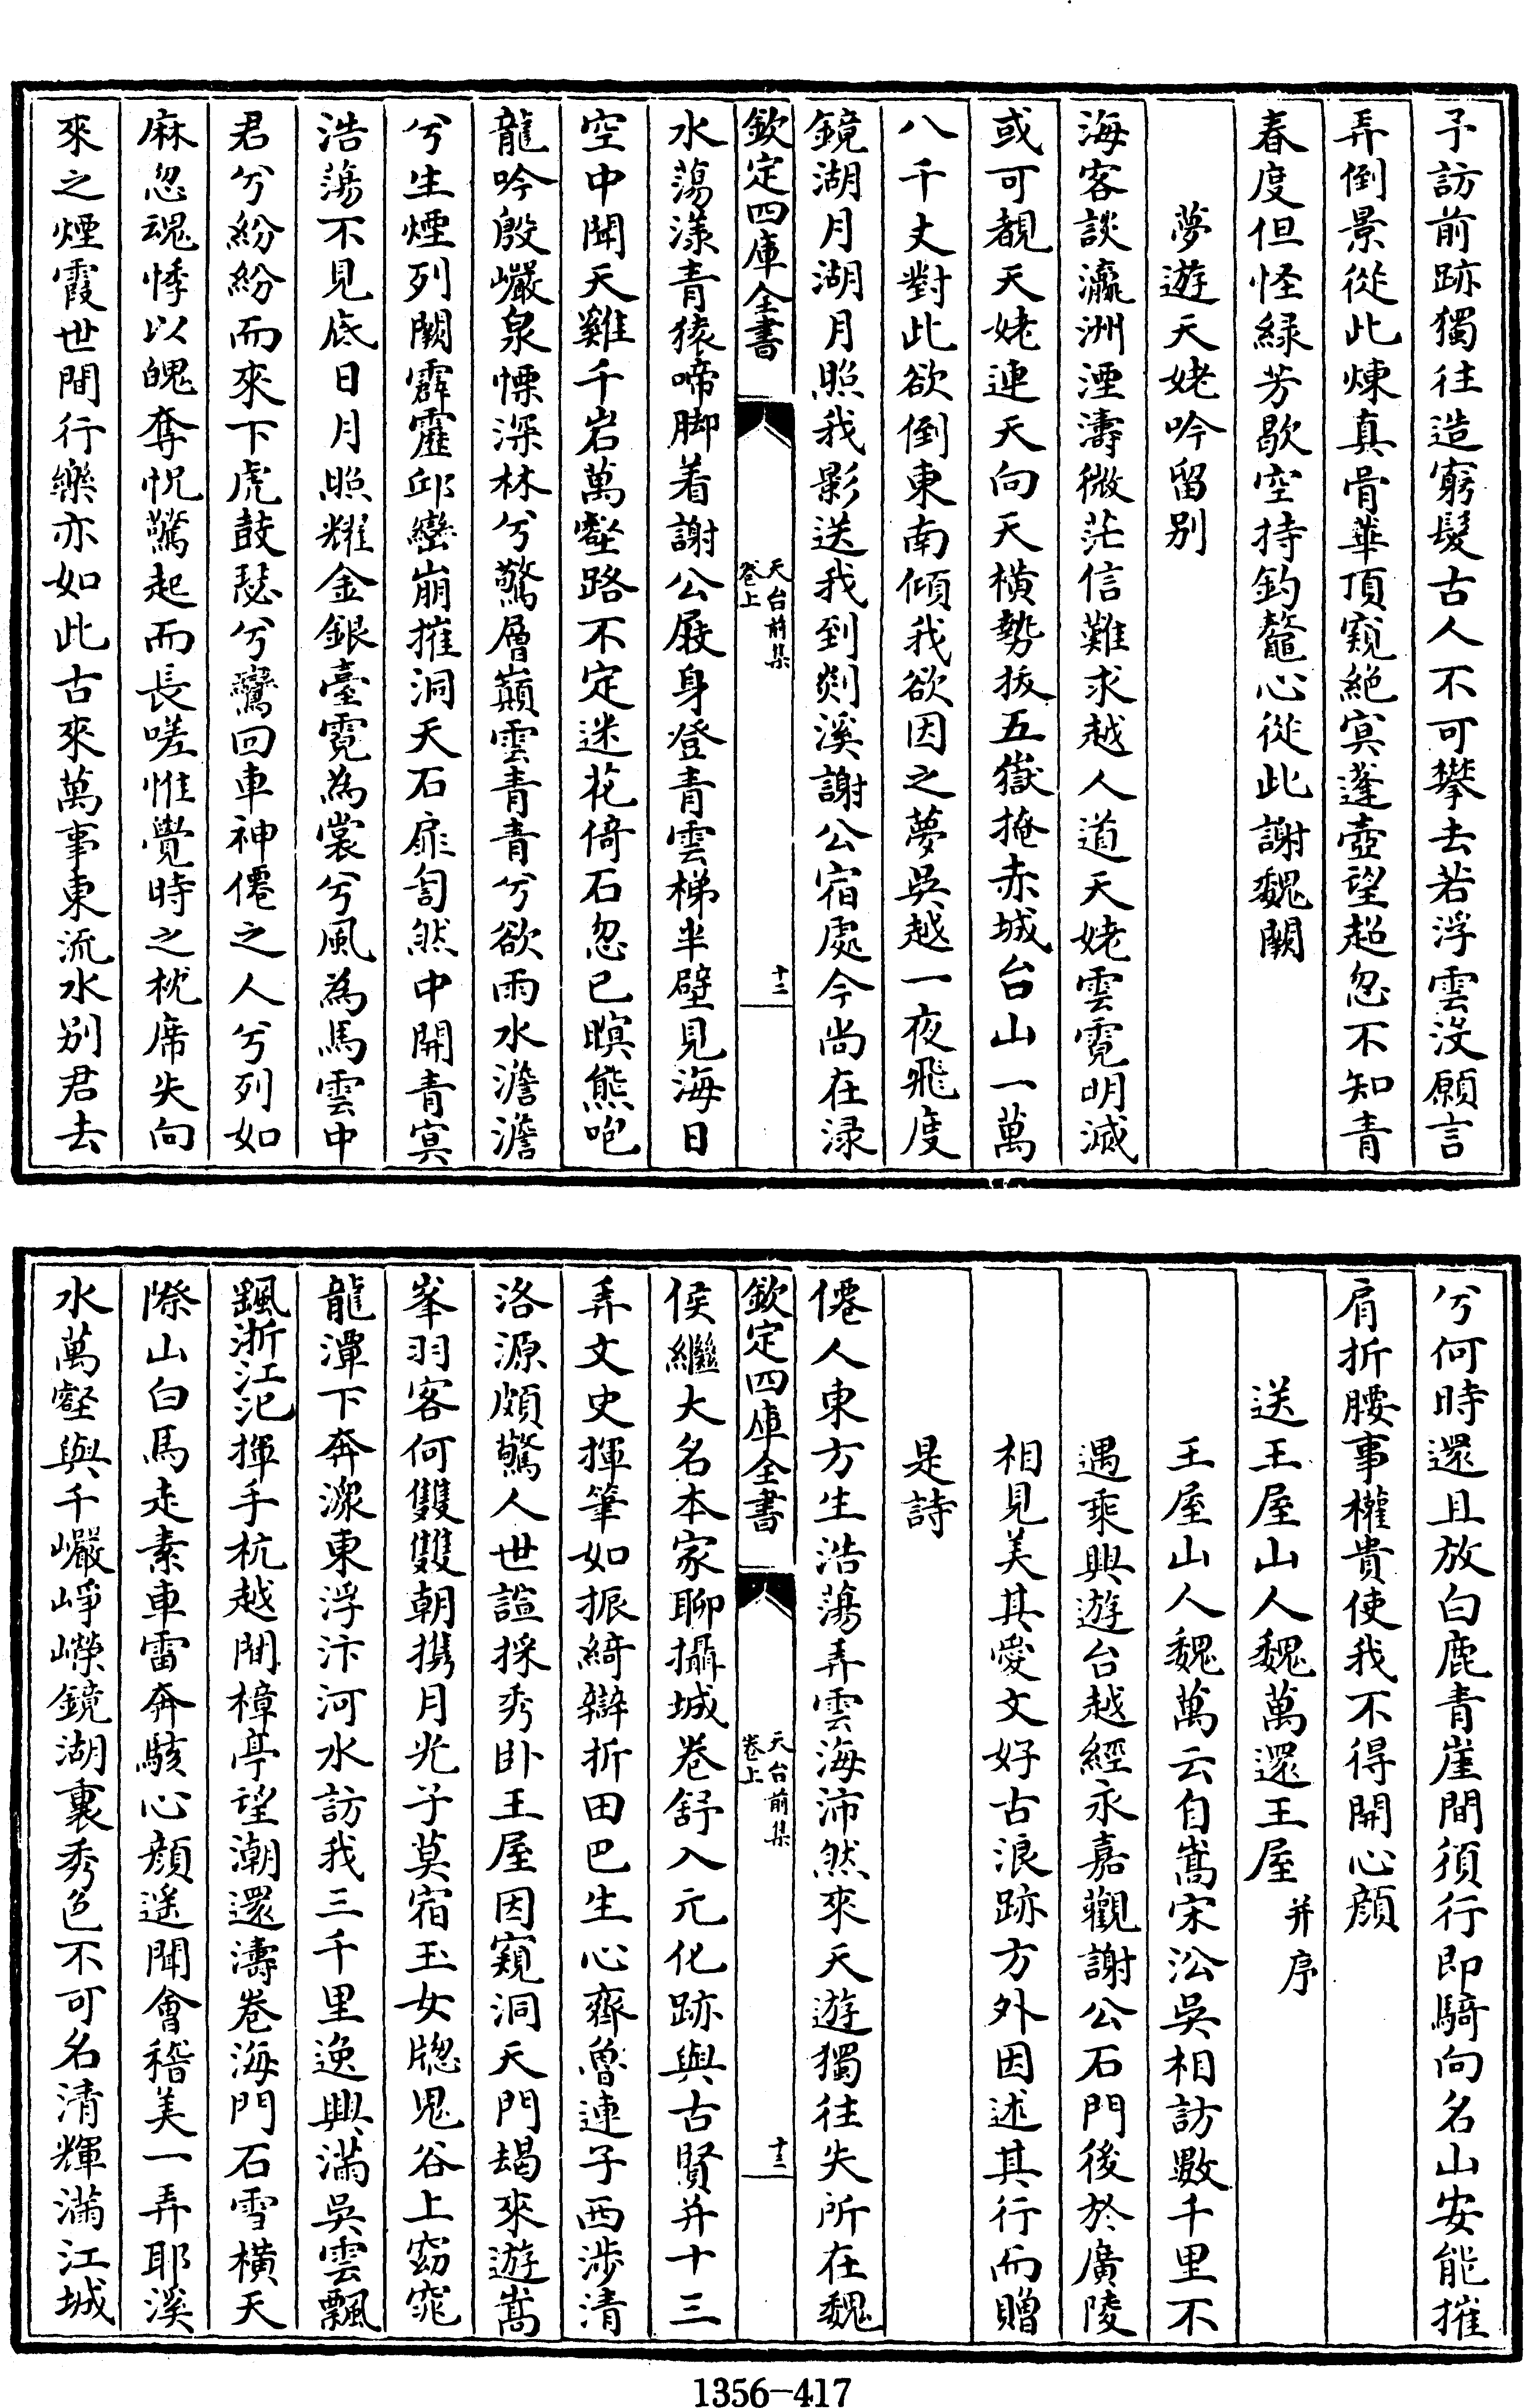 予訪前跡獨往造窮髮古人不可攀去若浮雲沒願言
弄倒景從此煉真骨華頂窺絕寞蓬壺望超忽不知青
春度但怪緑芳歇空持釣鼇心從此謝魏闕
夢遊天姥吟留别
海客談瀛洲湮濤微茫信難求越人道天姥雲霓明滅
或可覩天姥連天向天横勢拔五嶽掩赤城台山一萬
八千丈對此欲倒東南傾我欲因之夢吳越一夜飛度
鏡湖月湖月照我影送我到剡溪謝公宿處今尚在渌
欽定四庫全書
天台前集
卷上
十二
水蕩漾青猿啼脚着謝公屐身登青雲梯半壁見海日
空中聞天雞千岩萬壑路不定迷花倚石忽已暝熊咆
龍吟殷巖泉慄深林兮驚層巔雲青青兮欲雨水澹澹
兮生煙列闕霹靂邱巒崩摧洞天石扉訇然中開青㝠
浩蕩不見底日月照耀金銀臺霓為裳兮風為馬雲中
君兮紛紛而來下虎鼓瑟兮鸞回車神僊之人兮列如
麻忽魂悸以魄奪怳驚起而長嗟惟覺時之枕席失向
來之煙霞世間行樂亦如此古來萬事東流水别君去
兮何時還且放白鹿青崖間須行即騎向名山安能摧
肩折腰事權貴使我不得開心顔
送王屋山人魏萬還王屋并序
王屋山人魏萬云自嵩宋沿吳相訪數千里不
遇乘興遊台越經永嘉觀謝公石門後於廣陵
相見美其愛文好古浪跡方外因述其行而贈
是詩
僊人東方生浩蕩弄雲海沛然來天遊獨往失所在魏
欽定四庫全書
天台前集
卷上
十三
侯繼大名本家聊攝城卷舒入元化跡與古賢并十三
弄文史揮筆如振綺辯折田巴生心齊魯連子西涉清
洛源頗驚人世諠採秀卧王屋因窺洞天門朅來遊嵩
峯羽客何雙雙朝携月光子莫宿玉女牕鬼谷上窈窕
龍潭下奔潨東浮汴河水訪我三千里逸興滿吳雲飄
飄浙江汜揮手杭越間樟亭望潮還濤卷海門石雪横天
際山白馬走素車雷奔駭心顔遥聞會稽美一弄耶溪
水萬壑與千巖崢嶸鏡湖裏秀色不可名清輝滿江城
1356-417